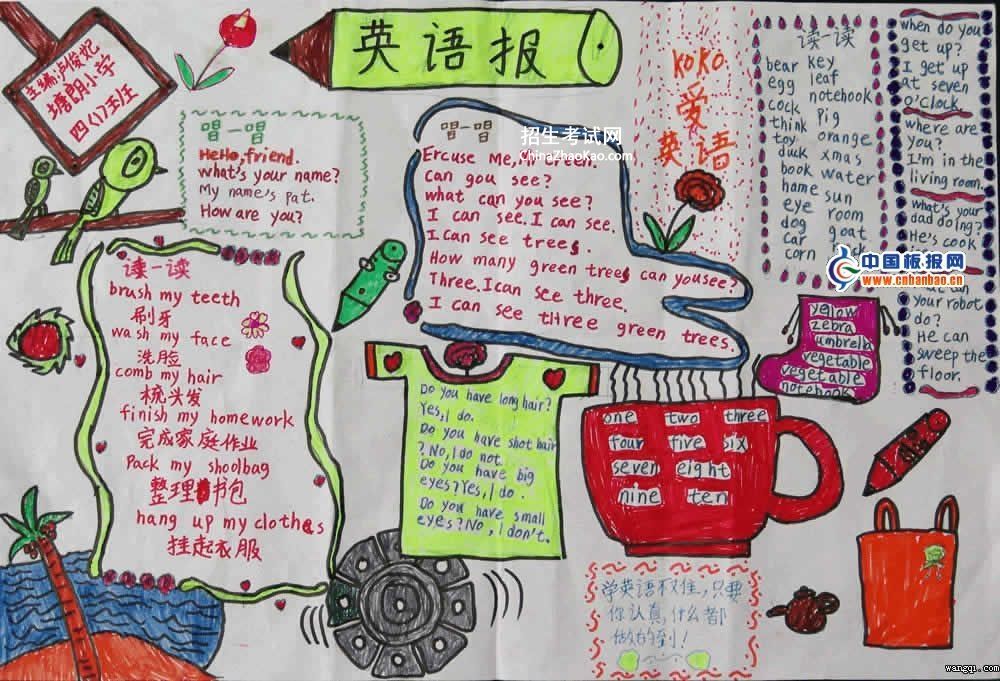 英语报
主编:卢俊妃
塘朗小学
四(1)班
唱一唱
Hello, friend.
what's your name?
My name's Pat.
How are you?
唱一唱
Ercuse Me, Mr Green.
Can you see?
what can you see?
I can see. I can see.
I can see trees.
How many green trees can you see?
Three. I can see three.
I can see three green trees.
招生考试网
ChinaZhaoKao.com
KOKO
爱
英语
读一读
bear key
egg leaf
cock notebook
think pig
toy orange
duck xmas
book water
hame sun
eye room
dog goat
car
corn
when do you
get up?
I get up
at seven
o'clock
where are
you?
I'm in the
living room.
what's your
dad doing?
He's cook
your robot
do?
He can
sweep the
floor.
中国板报网
www.cnbanbao.cn
读一读
brush my teeth
刷牙
wash my face
洗脸
comb my hair
梳头发
finish my homework
完成家庭作业
Pack my shoolbag
整理书包
hang up my clothes
挂起衣服
Do you have long hair?
Yes, I do.
Do you have shot hair
? No, I do not.
Do you have big
eyes? Yes, I do.
Do you have small
eyes? No, I don't.
one two three
four five six
seven eight
nine ten
yellow
zebra
umbrella
vegetable
vegetable
notebook
学英语不难,只要
你认真,什么都
做的到!
wangqi.com